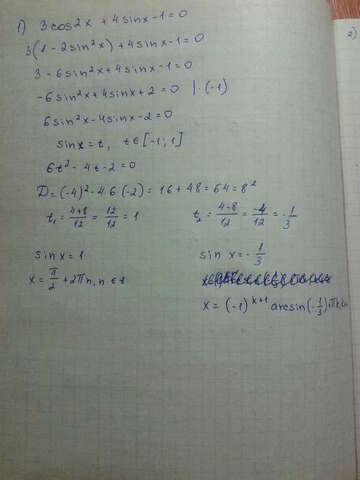 1) 3cos2x + 4sinx - 1 = 0
2)
3(1 - 2sin²x) + 4sinx - 1 = 0
3 - 6sin²x + 4sinx - 1 = 0
-6sin²x + 4sinx + 2 = 0 | · (-1)
6sin²x - 4sinx - 2 = 0
sinx = t, t∈[-1; 1]
6t² - 4t - 2 = 0
D = (-4)² - 4·6·(-2) = 16 + 48 = 64 = 8²
t₁ = (4+8)/12 = 12/12 = 1 t₂ = (4-8)/12 = -4/12 = -1/3
sinx = 1 sin x = -1/3
x = π/2 + 2πn, n ∈ z
x = (-1)ᵏ⁺¹ arcsin(-1/3)